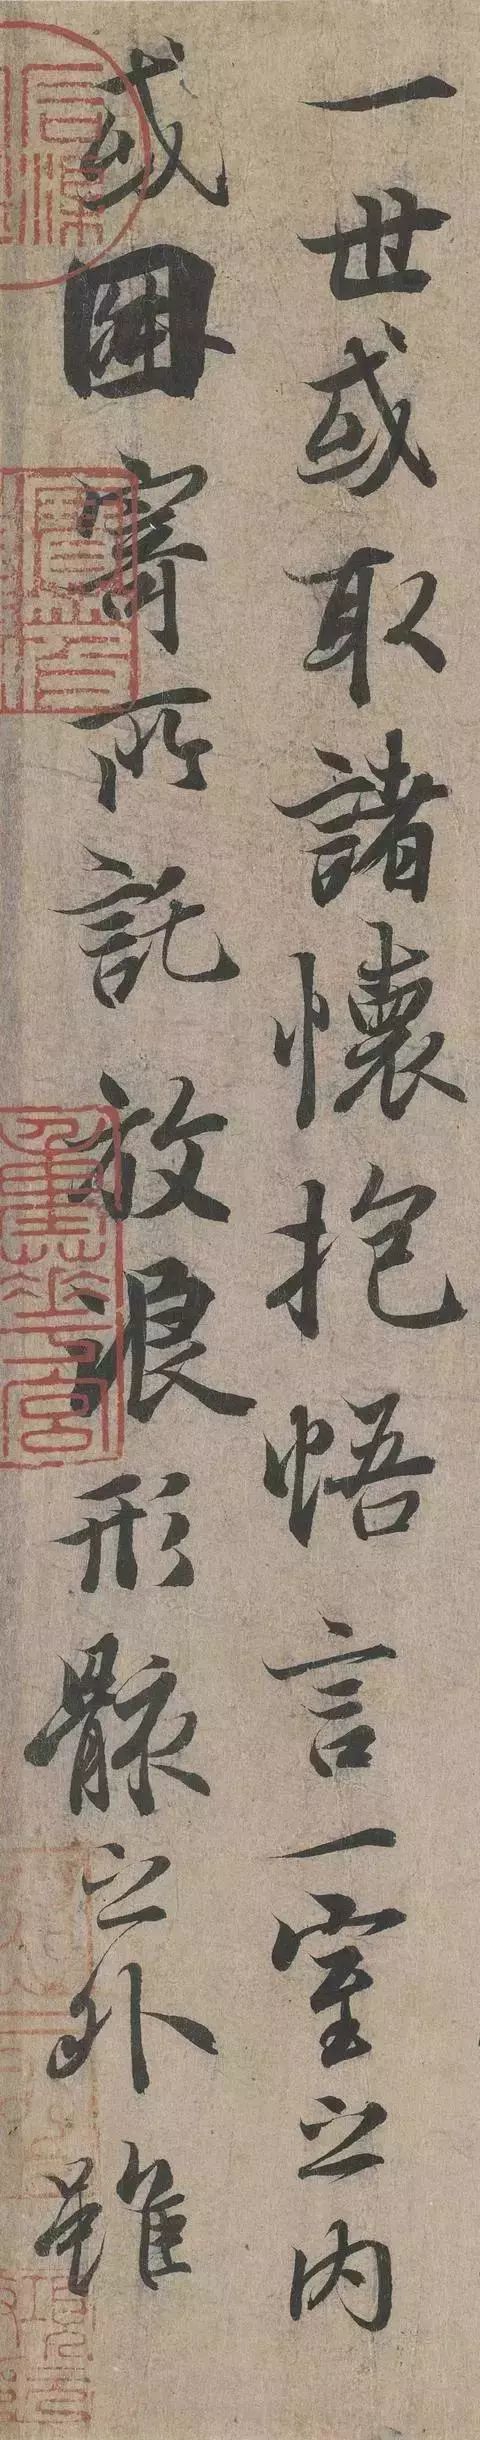 一世或取諸懷抱悟言一室之内
或因寄所託放浪形骸之外雖
重華宮